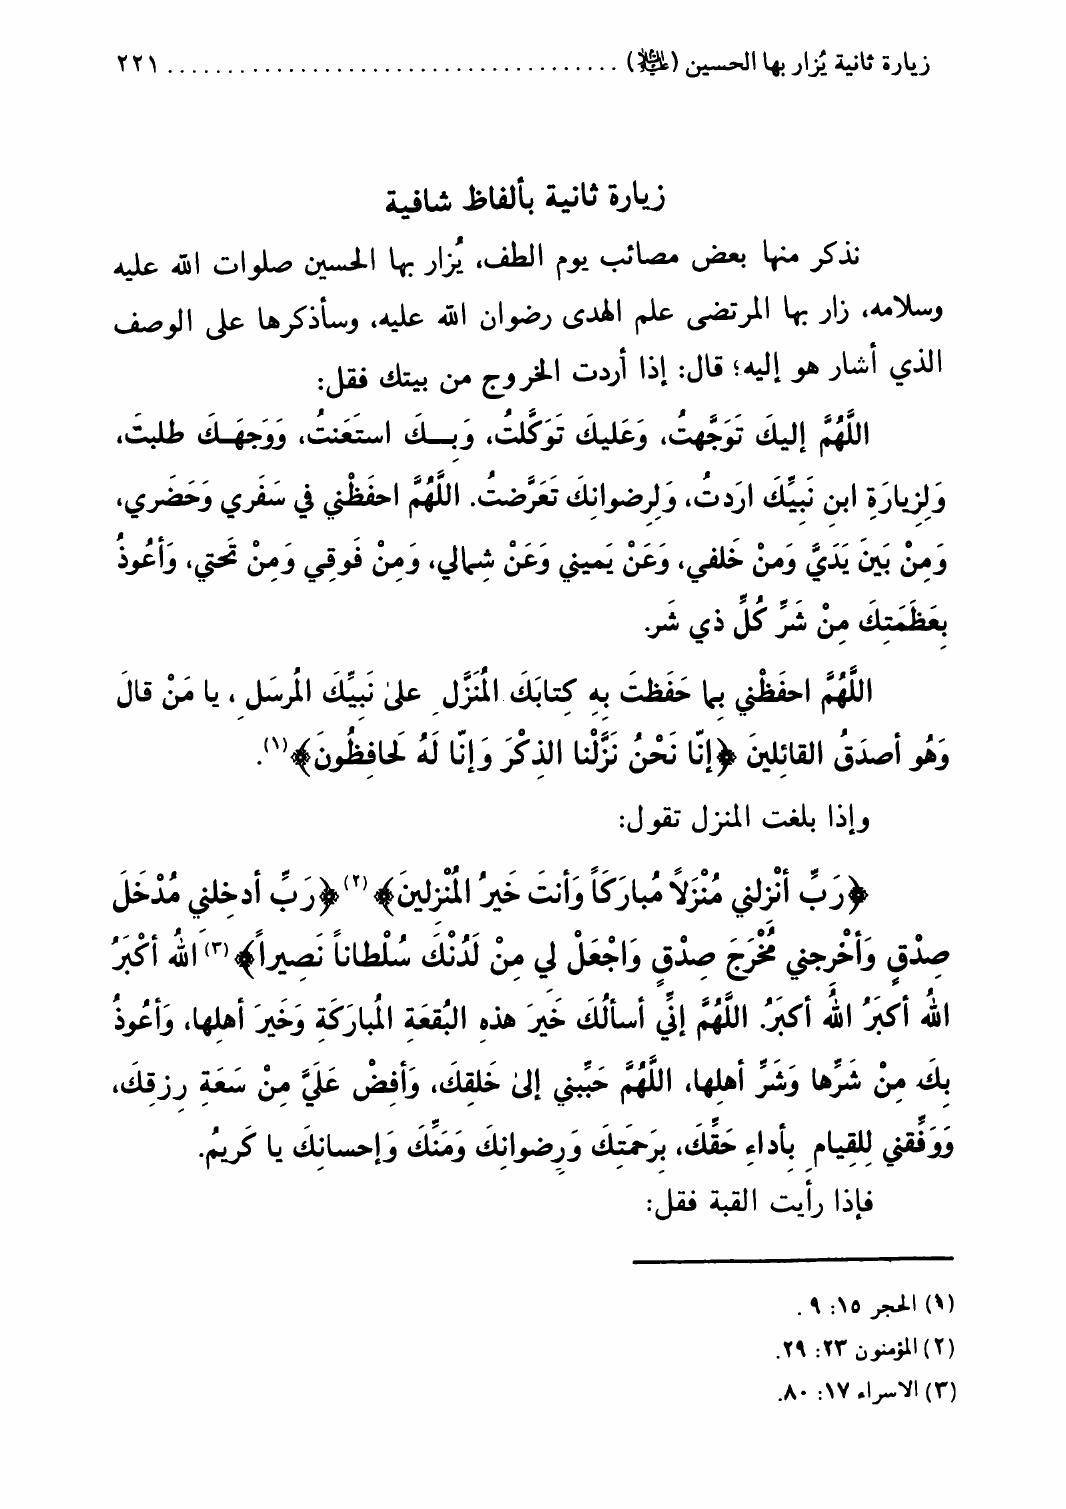 زيارة ثانية يُزار بها الحسين (عليه السلام) ...................................... ٢٢١
زيارة ثانية بألفاظ شافية
نذكر منها بعض مصائب يوم الطف، يُزار بها الحسين صلوات الله عليه
وسلامه، زار بها المرتضى علم الهدى رضوان الله عليه، وسأذكرها على الوصف
الذي أشار هو إليه؛ قال: إذا أردت الخروج من بيتك فقل:
اللَّهُمَّ إليكَ تَوَجَّهتُ، وَعَليكَ تَوَكَّلتُ، وَبِـــكَ استَعَنتُ، وَوَجهَـكَ طلبتَ،
وَلِزِيارَةِ ابنِ نَبيِّكَ ارَدتُ، وَلِرِضوانِكَ تَعَرَّضتُ. اللَّهُمَّ احفَظْني في سَفَري وَحَضَري،
وَمِنْ بَينَ يَدَيَّ وَمنْ خَلفي، وَعَنْ يَميني وَعَنْ شِمالي، وَمِنْ فَوقِي وَمِنْ تَحتي، وَأعُوذُ
بِعَظَمَتِكَ مِنْ شَرِّ كُلِّ ذي شَر.
اللَّهُمَّ احفَظْني بِما حَفَظتَ بِهِ كِتابَكَ المُنَزَّلِ علىٰ نَبيِّكَ المُرسَلِ، يا مَنْ قالَ
وَهُو أصدَقُ القائِلينَ ﴿إنّا نَحْنُ نَزَّلْنا الذِكْرَ وَإنّا لَهُ لَحافِظُونَ﴾(١).
وإذا بلغت المنزل تقول:
﴿رَبِّ أنْزِلني مُنْزَلاً مُبارَكَاً وَأنتَ خَيرُ المُنْزِلينَ﴾(٢) ﴿رَبِّ أدخِلني مُدْخَلَ
صِدْقٍ وَأخْرِجني مُخْرَجَ صِدْقٍ وَاجْعَلْ لي مِنْ لَدُنْكَ سُلْطاناً نَصِيراً﴾(٣) اللهُ أكْبَرُ
اللهُ أكبَرُ اللهُ أكبَرُ. اللَّهُمَّ إنِّي أسألُكَ خَيرَ هذهِ البُقعَةِ المُبارَكَةِ وَخَيرَ أهلِها، وَأعُوذُ
بِكَ مِنْ شَرِّها وَشَرِّ أهلِها، اللَّهُمَّ حَبِّبني إلىٰ خَلقِكَ، وَأفِضْ عَلَيَّ مِنْ سَعَةِ رِزقِكَ،
وَوَفِّقني لِلقِيامِ بِأداءِ حَقِّكَ، بِرَحمَتِكَ وَرِضوانِكَ وَمَنِّكَ وَإحسانِكَ يا كَريمُ.
فإذا رأيت القبة فقل:
(١) الحجر ١٥: ٩ .
(٢) المؤمنون ٢٣: ٢٩.
(٣) الاسراء ١٧: ٨٠.